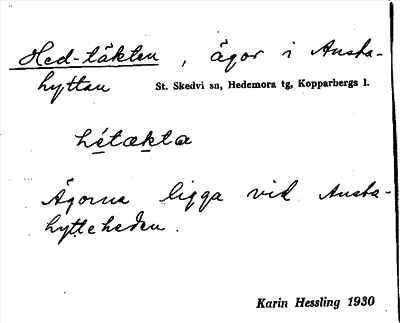 Hed-täkten, ägor i Ansta-
hyttan St. Skedvi sn, Hedemora tg, Kopparbergs l.
hétækta
Ägorna ligga vid Ansta-
hytteheden.
Karin Hessling 1930